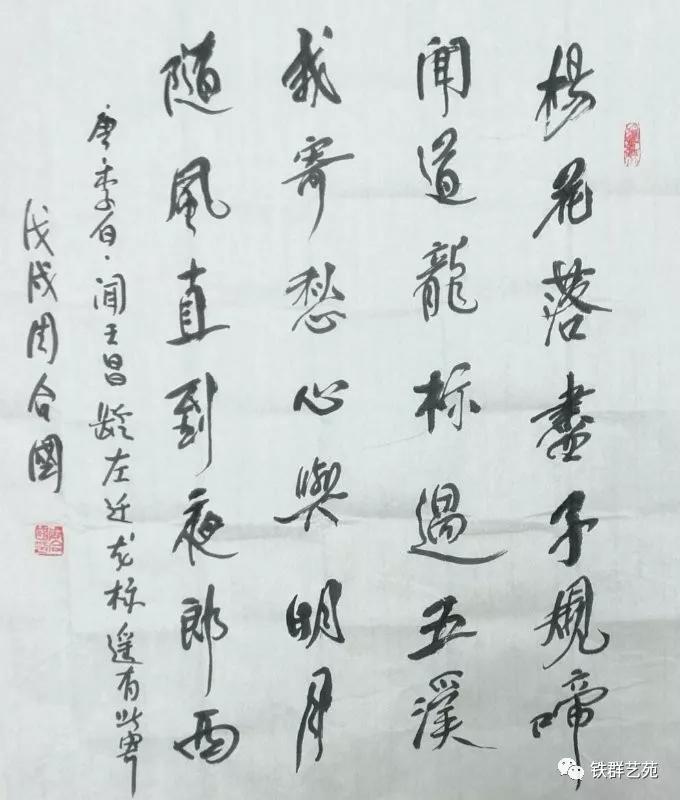 楊花落盡子規啼
聞道龍标過五溪
我寄愁心與明月
隨風直到夜郎西
唐·李白·闻王昌龄左迁龙标遥有此寄
戊戌周合國
铁群艺苑